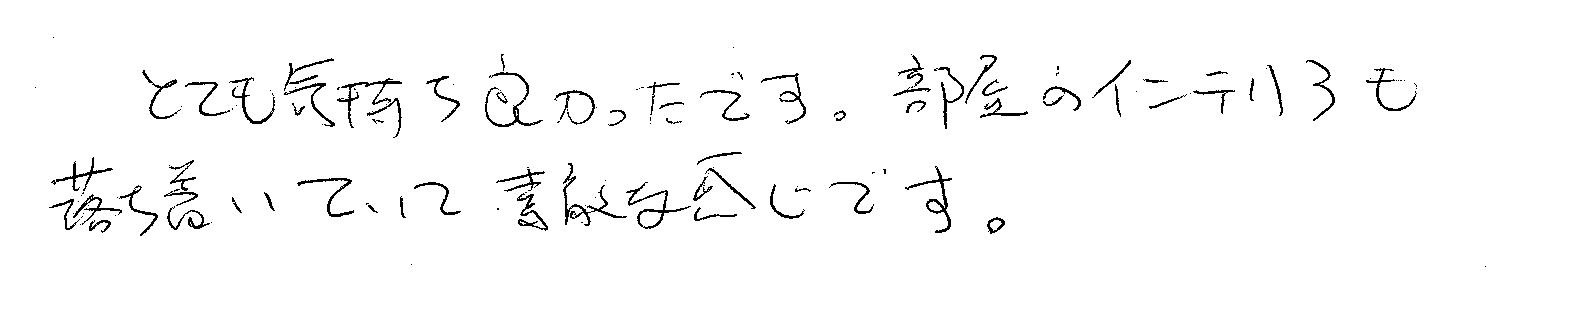 とても気持ち良かったです。部屋のインテリアも
落ち着いていて素敵な感じです。